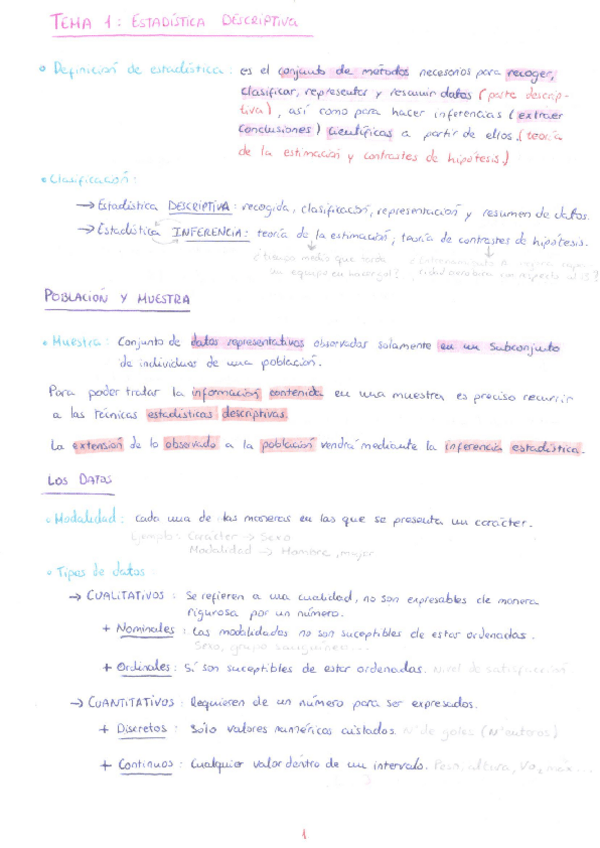 TEMA 1: ESTADÍSTICA DESCRIPTIVA
• Definición de estadística: es el conjunto de métodos necesarios para recoger,
clasificar, representar y resumir datos (parte descrip-
tiva), así como para hacer inferencias (extraer
conclusiones) científicas a partir de ellos (teoría
de la estimación y contrastes de hipótesis)
• Clasificación:
→ Estadística DESCRIPTIVA: recogida, clasificación, representación y resumen de datos.
→ Estadística INFERENCIA: teoría de la estimación; teoría de contrastes de hipótesis.
¿tiempo medio que tarda
un equipo en
POBLACIÓN Y MUESTRA
• Muestra: Conjunto de datos representativos observados solamente en un subconjunto
de individuos de una población.
Para poder tratar la información contenida en una muestra es preciso recurrir
a las técnicas estadísticas descriptivas.
La extensión de lo observado a la población vendrá mediante la inferencia estadística.
LOS DATOS
• Modalidad: cada una de las maneras en las que se presenta un carácter.
Ejemplo: Carácter → Sexo
Modalidad → Hombre, mujer
• Tipos de datos:
→ CUALITATIVOS: Se refieren a una cualidad, no son expresables de manera
rigurosa por un número.
+ Nominales: Las modalidades no son suceptibles de estar ordenadas.
Sexo, grupo sanguíneo...
+ Ordinales: Sí son suceptibles de estar ordenadas. Nivel de satisfacción
→ CUANTITATIVOS: Requieren de un número para ser expresados.
+ Discretos: Sólo valores numéricos aislados. Nº de goles (Nº enteros)
+ Continuos: Cualquier valor dentro de un intervalo. Peso, altura, VO2 máx...
1